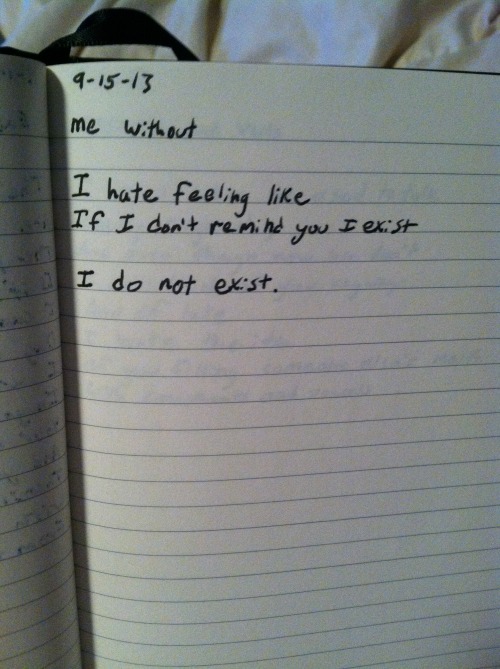 9-15-13
me without
I hate feeling like
If I don't remind you I exist
I do not exist.